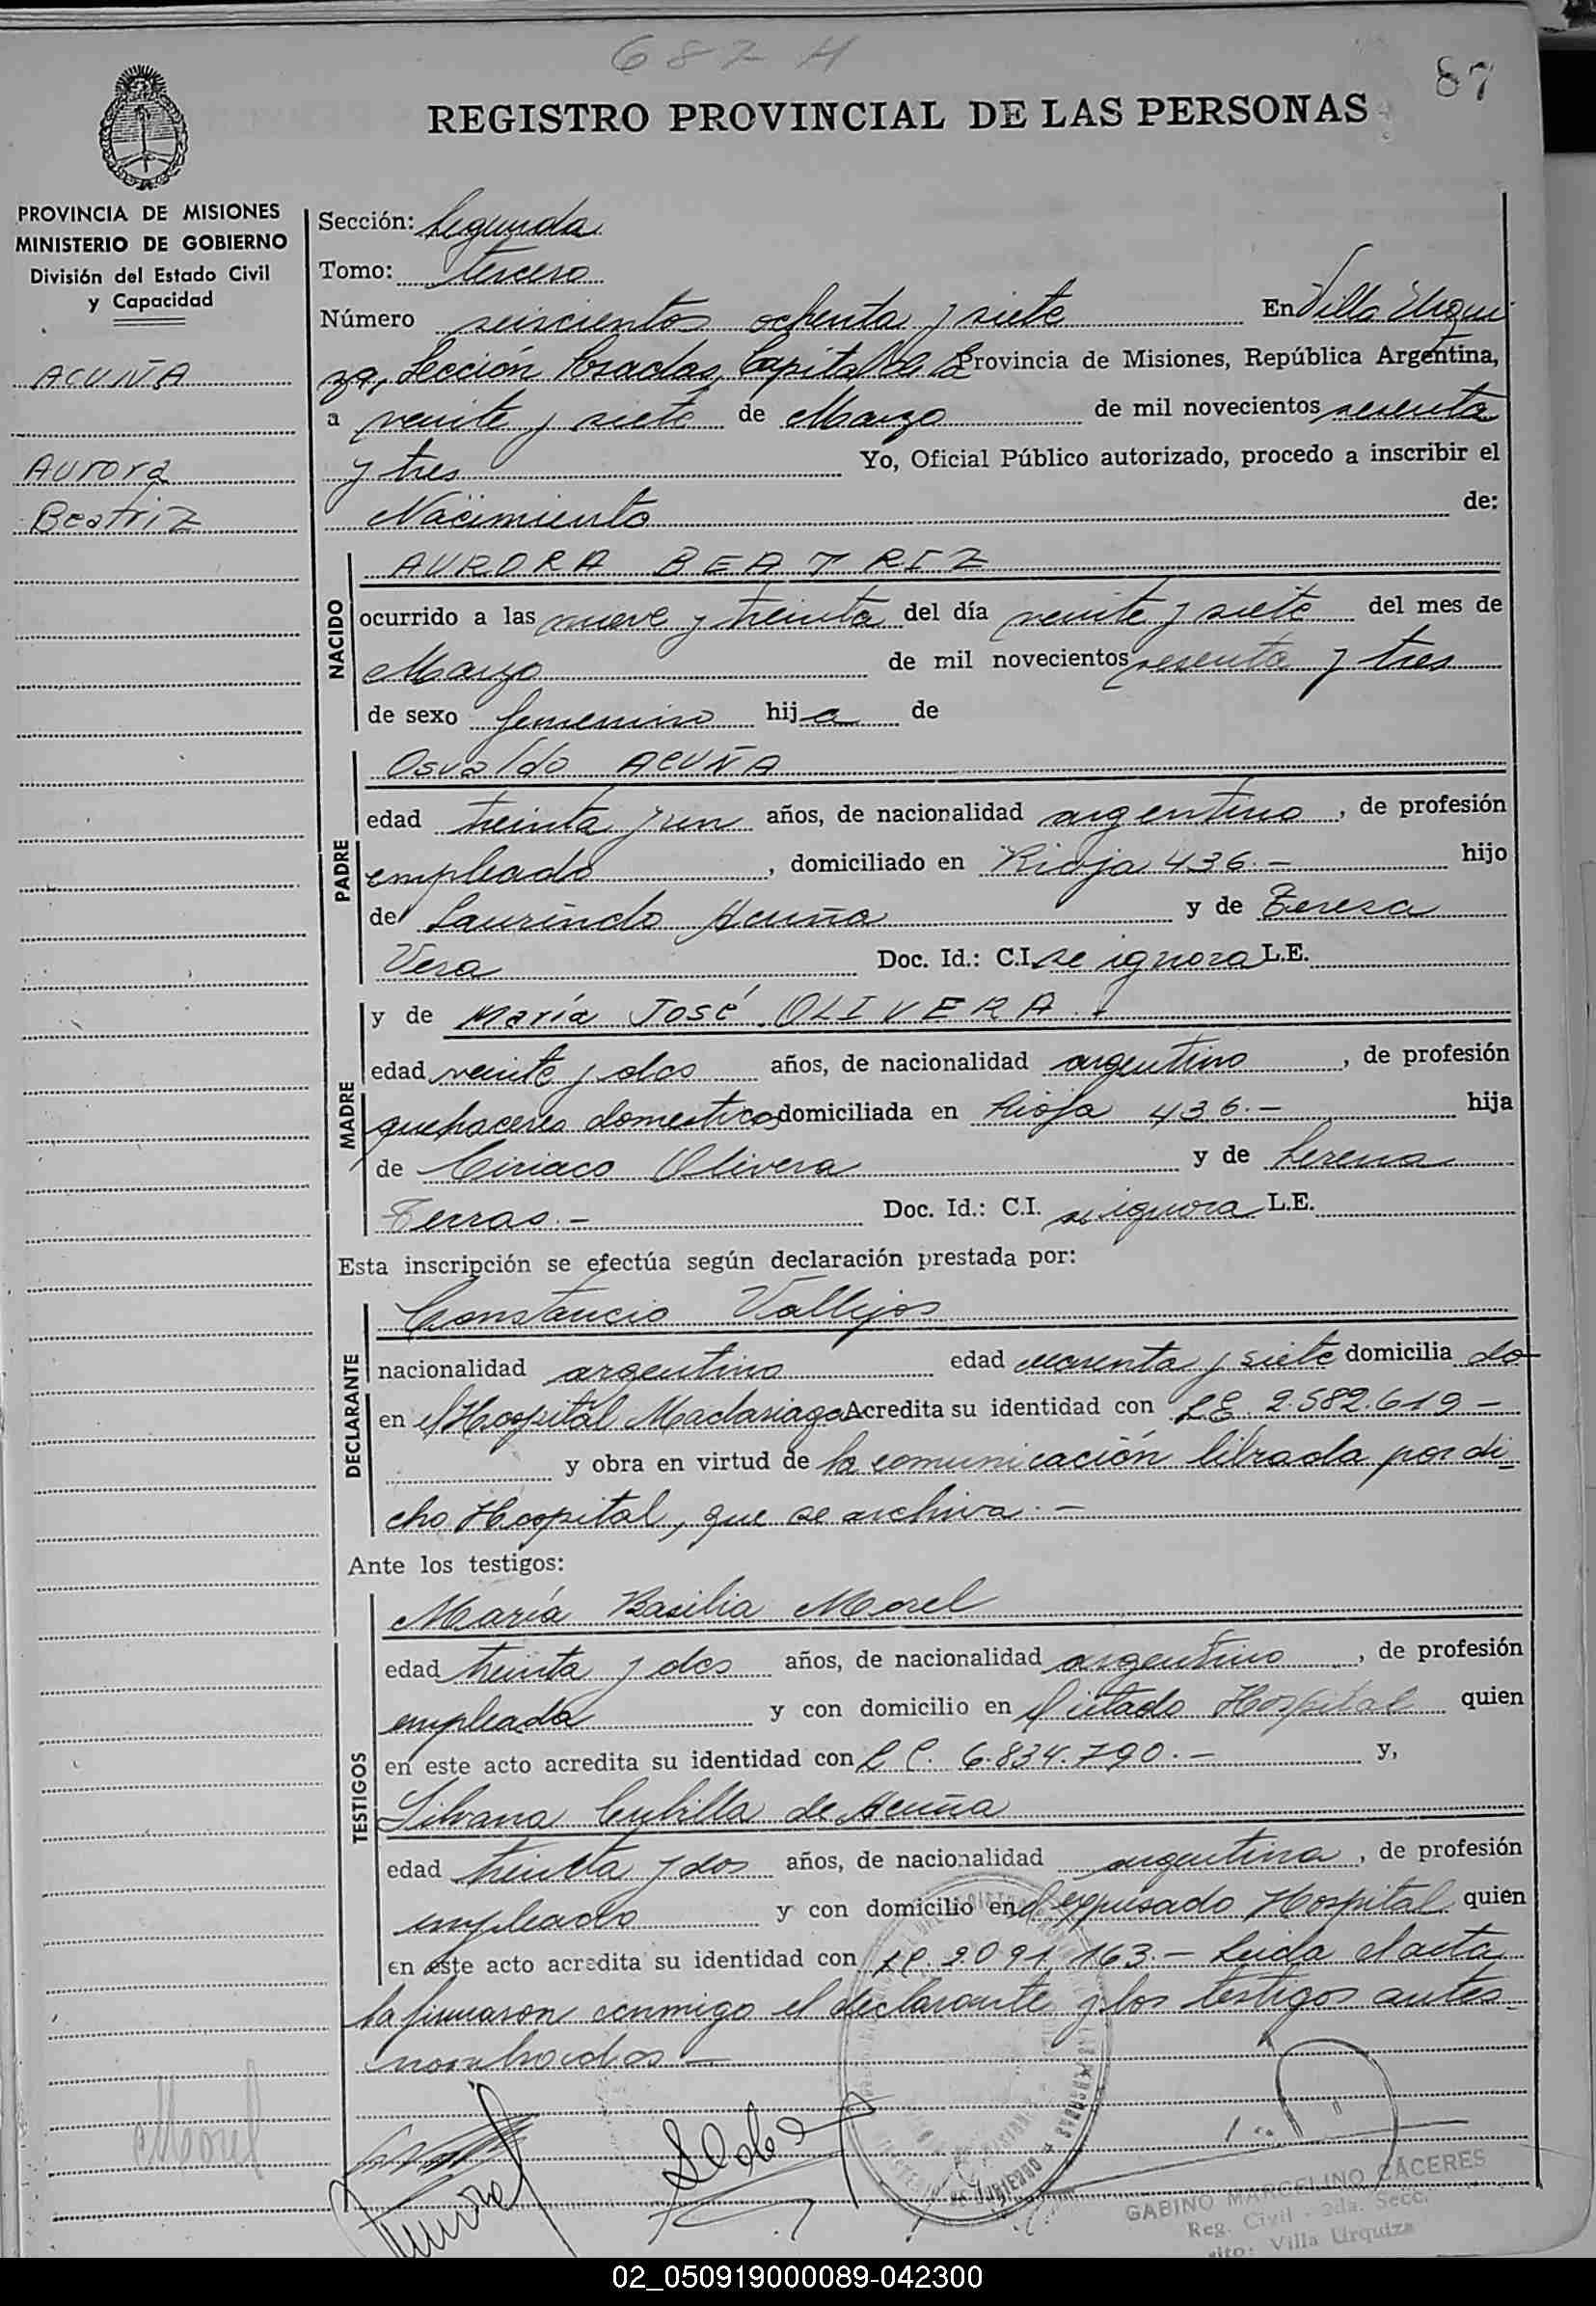 682 H
87
REGISTRO PROVINCIAL DE LAS PERSONAS
PROVINCIA DE MISIONES
MINISTERIO DE GOBIERNO
División del Estado Civil
y Capacidad
ACUÑA
Aurora
Beatriz
Sección: Segunda
Tomo: tercero
Número seiscientos ochenta y siete En Villa Urqui
za, Sección Posadas, Capital de la Provincia de Misiones, República Argentina,
a veinte y siete de Marzo de mil novecientos sesenta
y tres Yo, Oficial Público autorizado, procedo a inscribir el
Nacimiento de:
NACIDO
AURORA BEATRIZ
ocurrido a las nueve y treinta del día veinte y siete del mes de
Marzo de mil novecientos sesenta y tres
de sexo femenino hija de
PADRE
Osvaldo ACUÑA
edad treinta y un años, de nacionalidad argentino, de profesión
empleado, domiciliado en Rioja 436.- hijo
de Laurindo Acuña y de Teresa
Vera Doc. Id.: C.I. se ignora L.E.
MADRE
y de María José OLIVERA.
edad veinte y dos años, de nacionalidad argentino, de profesión
quehaceres domesticos domiciliada en Rioja 436.- hija
de Ciriaco Olivera y de
Doc. Id.: C.I. se ignora L.E.
Esta inscripción se efectúa según declaración prestada por:
DECLARANTE
Constancio Vallejos
nacionalidad argentino edad cuarenta y siete domicilia do
en el Hospital Madariaga Acredita su identidad con L.E. 2.582.619 -
y obra en virtud de la comunicación librada por di-
cho Hospital, que se archiva.-
Ante los testigos:
TESTIGOS
María Basilia Morel
edad treinta y dos años, de nacionalidad argentino, de profesión
empleada y con domicilio en el citado Hospital quien
en este acto acredita su identidad con L C. 6.834.790.- y,
Silvana Cubilla de Acuña
edad treinta y dos años, de nacionalidad argentina, de profesión
empleado y con domicilio en el expresado Hospital quien
en este acto acredita su identidad con L C. 2.091.163.- Leida el acta
la firmaron conmigo el declarante y los testigos antes
nombrados -
Morel
GABINO MARCELINO CÁCERES
Reg. Civil - 2da. Secc.
Villa Urquiza
02_050919000089-042300